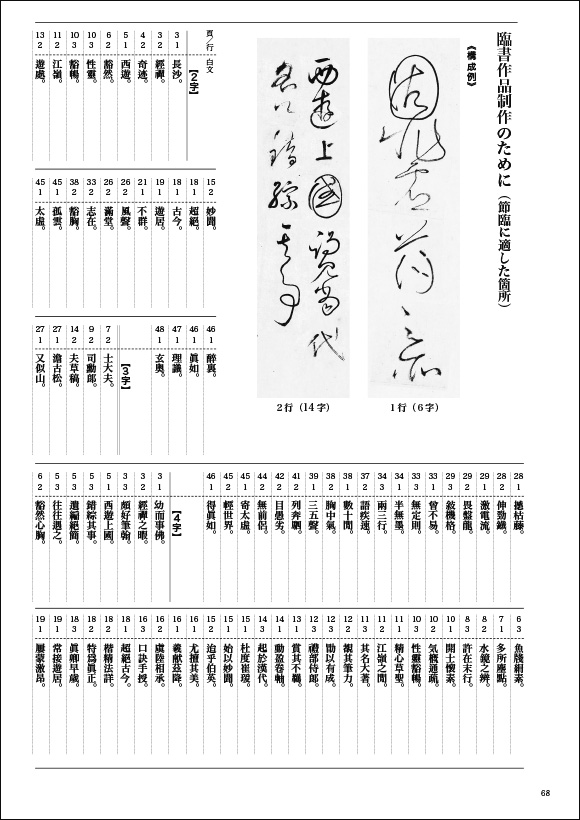 臨書作品制作のために（節臨に適した箇所）
《構成例》
固非虚蕩之所
1行（6字）
西遊上國謁見當代
名公錯綜其事
2行（14字）
頁／行 白文
【2字】
3 1 長沙。
3 2 經禪。
4 2 奇迹。
5 1 西遊。
6 2 豁然。
10 3 性靈。
10 3 豁暢。
11 2 江嶺。
13 2 遊處。
15 2 妙聞。
18 1 超絕。
18 1 古今。
19 1 遊居。
21 1 不群。
26 2 風聲。
26 2 滿堂。
33 2 志在。
38 2 豁胸。
45 1 孤雲。
45 1 太虛。
46 1 醉裏。
46 1 眞如。
47 1 理識。
48 1 玄奥。
【3字】
7 2 士大夫。
9 2 司勳郎。
14 2 夫草稿。
27 1 澹古松。
27 1 又似山。
28 1 撼枯藤。
28 2 伸勁鐵。
29 1 激電流。
29 2 畏盤龍。
29 3 敍機格。
33 1 曾不易。
33 1 無定則。
34 1 半無墨。
34 3 兩三行。
37 2 語疾速。
38 1 數十間。
38 2 胸中氣。
39 1 三五聲。
41 2 列奔駟。
42 2 目愚劣。
44 2 無前侶。
45 1 寄太虛。
45 2 輕世界。
46 1 得眞如。
【4字】
3 1 幼而事佛。
3 2 經禪之暇。
3 3 頗好筆翰。
5 1 西遊上國。
5 3 錯綜其事。
5 3 遺編絕簡。
5 3 往往遇之。
6 2 豁然心胸。
6 3 魚牋絹素。
7 1 多所塵點。
8 2 水鏡之辨。
8 3 許在末行。
10 1 開士懷素。
10 2 気概通疏。
10 3 性靈豁暢。
11 1 精心草聖。
11 2 江嶺之間。
11 3 其名大著。
12 2 觀其筆力。
12 3 勗以有成。
12 3 禮部侍郎。
13 1 賞其不羈。
14 1 動盈卷軸。
14 3 起於漢代。
15 1 杜度崔瑗。
15 1 始以妙聞。
15 2 迨乎伯英。
16 1 尤擅其美。
16 1 羲獻茲降。
16 2 虞陸相承。
16 3 口訣手授。
18 1 超絕古今。
18 2 楷精法詳。
18 2 特爲眞正。
18 3 眞卿早歲。
19 1 常接遊居。
19 1 屢蒙激昂。
68